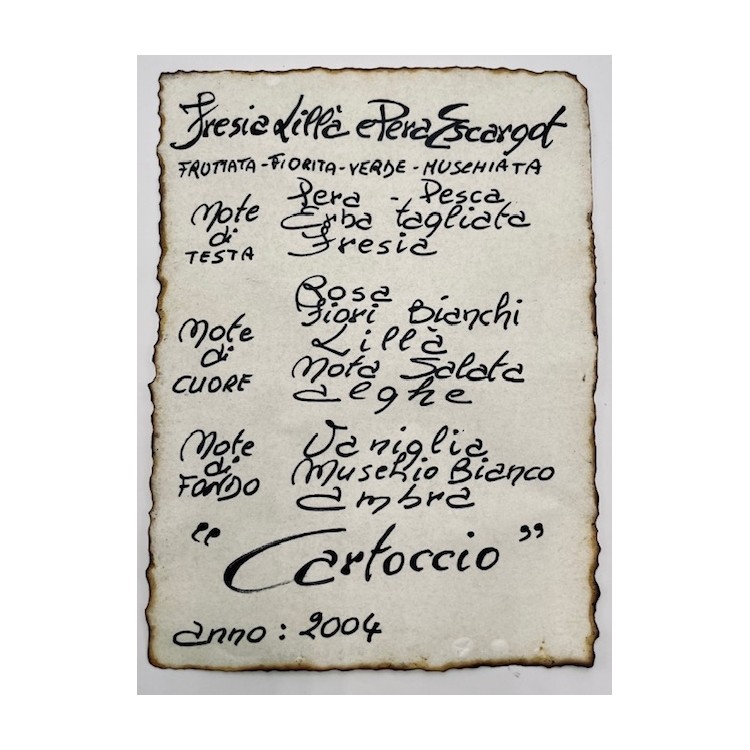 Fresia Lillà e Pera Escargot
FRUTTATA - FIORITA - VERDE - MUSCHIATA
Note di TESTA
Pera - Pesca
Erba tagliata
Fresia
Note di CUORE
Rosa
Fiori Bianchi
Lillà
Nota Salata
alghe
Note di FONDO
Vaniglia
Muschio Bianco
ambra
“Cartoccio”
anno: 2004